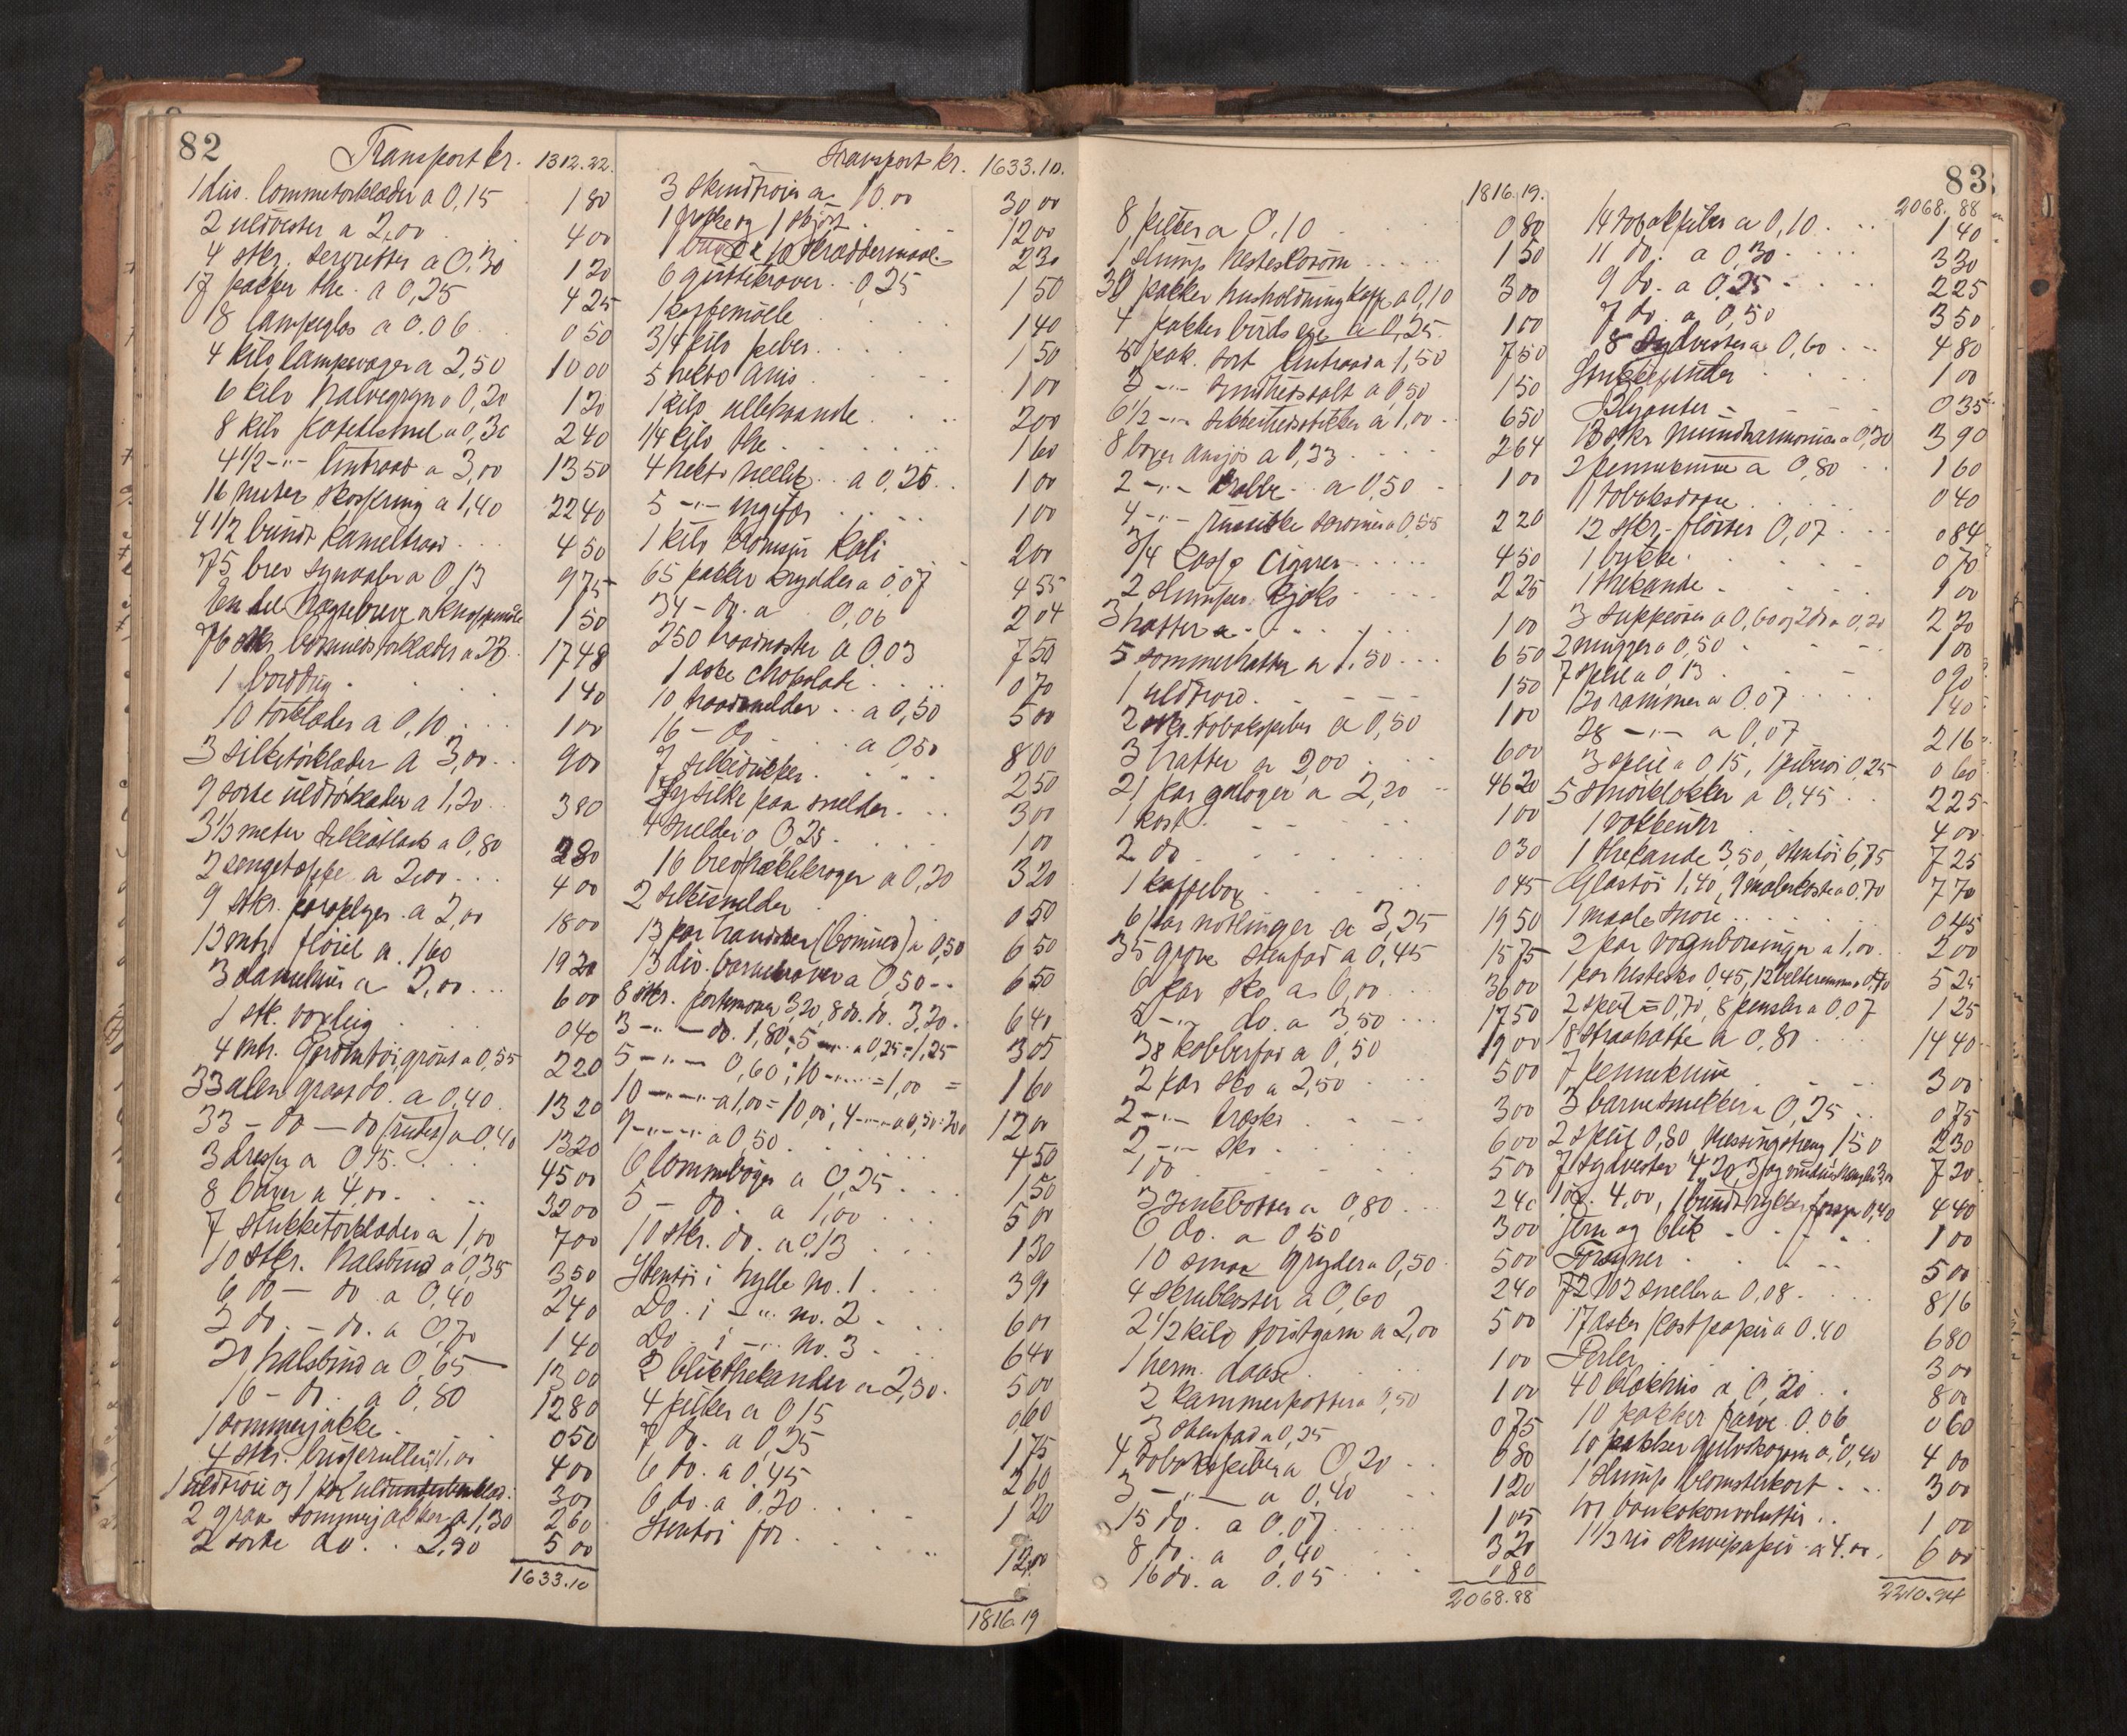 82
Transport kr. 1312.22.
1 dus. lommetørklæder a 0,15 1 80
2 uldvester a 2,00 4 00
4 stkr. servietter a 0,30 1 20
17 pakker the a 0,25 4 25
8 lampeglas a 0.06 0 50
4 kilo lampevæger a 2,50 10 00
6 kilo havregryn a 0,20 1 20
8 kilo potetesmel a 0,30 2 40
4 1/2 -"- lintraad a 3,00 13 50
16 meter skofòring a 1,40 22 40
4 1/2 bundt kameltraad 4 50
75 brev synaaler a 0,13 9 75
En del hægtebrev 1 50
76 stkr. bomuldstørklæder a 23 17 48
1 borddug 1 40
10 tørklæder a 0,10 1 00
3 silketørklæder a 3,00 9 00
9 sorte uldtørklæder a 1,20 3 80
3 1/2 meter silkeatlask a 0,80 2 80
2 sengetæppe a 2,00 4 00
9 stkr. paraplyer a 2,00 18 00
12 mtr. fløiel a 1.60 19 20
3 dameluer a 2,00 6 00
1 stk. voxleig 0 40
4 mtr. Grøntøi, grønt a 0,55 2 20
33 alen graat do. a 0,40 13 20
33 - do - do (rutet) a 0,40 13 20
3 dresser a 0,15 45 00
8 buxer a 4,00 32 00
7 strikketørklæder a 1,00 7 00
10 stkr. halsbind a 0,35 3 50
6 do - do a 0,40 2 40
2 do. - do. a 0,70 1 40
20 halsbind a 0,65 13 00
16 - do. a 0,80 12 80
1 sommerjakke 0 50
4 stkr. 1,00 4 00
1 uldtrøie og 1 par 3 00
2 graa sommerjakker a 1,30 2 60
2 sorte do. 2,50 5 00
1633.10
Transport kr. 1633.10.
3 skindtrøier a 10.00 30 00
1 og 1 skjørt 12 00
1 10 skræddermaal 2 30
6 0,25 1 50
1 kaffemølle 1 40
3/4 kilo peber 1 50
5 hekto anis 1 00
1 kilo 2 00
1/4 kilo the 1 60
4 hekto nellik a 0,25 1 00
5 -"- ingefær 1 00
1 kilo kromsur kali 2 00
65 pakker krydder a 0,07 4 55
34 - do. a 0,06 2 04
250 traadnøster a 0,03 7 50
1 æske chokolade 0 70
10 traadsnelder a 0,50 5 00
16 - do - a 0,50 8 00
7 silkeduker 2 50
Sysilke paa snelder 3 00
4 snelder a 0,25 1 00
16 brev hæklekroger a 0,20 3 20
2 silkesnelder 0 50
13 par handsker (bomuld) a 0,50 6 50
13 div. a 0,50 6 50
8 stkr. portemona 3,20, 8 do. do. 3,20 6 40
3 -"- do. 1,80; 5 -"- a 0,25 = 1,25 3 05
5 -"- 0,60; 10 -"- = 1,00 = 1 60
10 -"- a 1,00 = 10,00; 4 -"- a 0,50 = 2,00 12 00
9 -"- a 0,50 4 50
6 lommebøger a 0,25 1 50
5 - do. a 1,00 5 00
10 stkr. do. a 0,13 1 30
Stentøi i hylle no. 1 3 90
Do. i -"- no. 2 6 00
Do. i -"- no. 3 6 40
2 blikthekander a 2,50 5 00
4 pilker a 0,15 0 60
7 do. a 0,25 1 75
6 do. a 0,45 2 60
6 do. a 0,20 1 20
Stentøi for 12 00
1816.19
83
1816.19.
8 pilker a 0,10 0 80
1 slump hesteskosøm 1 50
30 pakker husholdningkaffe a 0,10 3 00
4 pakker birds eye a 0,25 1 00
5 pak. sort lintraad a 1,50 7 50
3 -"- a 0,50 1 50
6 1/2 -"- sikkerhedsstikker a 1,00 6 50
8 boxer ansjos a 0,33 2 64
2 -"- krabbe a 0,50 1 00
4 -"- russiske sardiner a 0,55 2 20
3/4 kasse cigarer 4 50
2 slumper kjeks 2 25
3 hatter a 1 00
5 sommerhatter a 1,30 6 50
1 uldtrøie 1 50
2 stkr. tobakspiber a 0,50 1 00
3 hatter a 2,00 6 00
21 par galoger a 2,20 46 20
1 kost 1 00
2 do 0 30
1 kaffebox 0 45
6 par notlinger a 3,25 19 50
35 grove stenfad a 0,45 15 75
6 par sko a 6,00 36 00
5 -"- do. a 3,50 17 50
38 kobberfad a 0,50 19 00
2 par sko a 2,50 5 00
2 -"- træsko 3 00
2 -"- sko 6 00
1 do 5 00
3 a 0,80 2 40
6 do. a 0,50 3 00
10 smaa gryder a 0,50 5 00
4 skrubkoster a 0,60 2 40
2 1/2 kilo tvistgarn a 2,00 5 00
1 herm. daase 1 00
2 kammerpotter a 0,50 1 00
3 stenfad a 0,25 0 75
4 tobakspiber a 0,20 0 80
3 -"- a 0,40 1 20
15 do. a 0,07 1 05
8 do. a 0,40 3 20
16 do. a 0.05 0 80
2068.88
2068.88
14 tobakpiber a 0,10 1 40
11 do. a 0,30 3 30
9 do. a 0,25 2 25
7 do. a 0,50 3 50
8 Sydvester a 0,60 4 80
Strikkepinder 1 00
Blyanter 0 35
13 stkr. mundharmonier a 0,30 3 90
2 pennekniver a 0,80 1 60
1 tobaksdaase 0 40
12 stkr. fløiter 0,07 0 84
1 bykke 0 70
1 thekande 1 00
3 a 0,60 og 2 do a 0,20 2 20
2 mugger a 0,50 1 00
7 speil a 0,13 0 90
20 rammer a 0.07 1 40
28 -"- a 0,07 2 16
3 speil a 0,15, 0,25 0 60
5 a 0,45 2 25
1 vækkeuhr 4 00
1 thekande 3,50, stentøi 6,75 7 25
Glastøi 1,40, 9 malerkoste a 0.70 7 70
1 maalesnore 0 45
2 par vognbøssinger a 1,00 2 00
1 par hestesko 0,45, 12 belteremmer a 0,40 5 25
2 speil = 0,70, 8 pensler a 0,07 1 25
18 straahatte a 0,80 14 40
7 pennekniver 3 00
3 barnesmekker a 0,25 0 75
2 speil 0,80 Messingstreng 1 50 2 30
7 sydvester 4 20, 7 20
1 4,00, 1 bundt 0,40 4 40
Jern og blik 1 00
5 00
102 sneller a 0,08 8 16
17 æsker postpapir a 0.40 6 80
Perler 3 00
40 blækhus a 0,20 8 00
10 pakker farve 0.06 0 60
10 pakker a 0,40 4 00
1 slump blomsterkort 3 00
100 3 00
1 1/3 ris skrivepapir a 4.00 6 00
2210.94